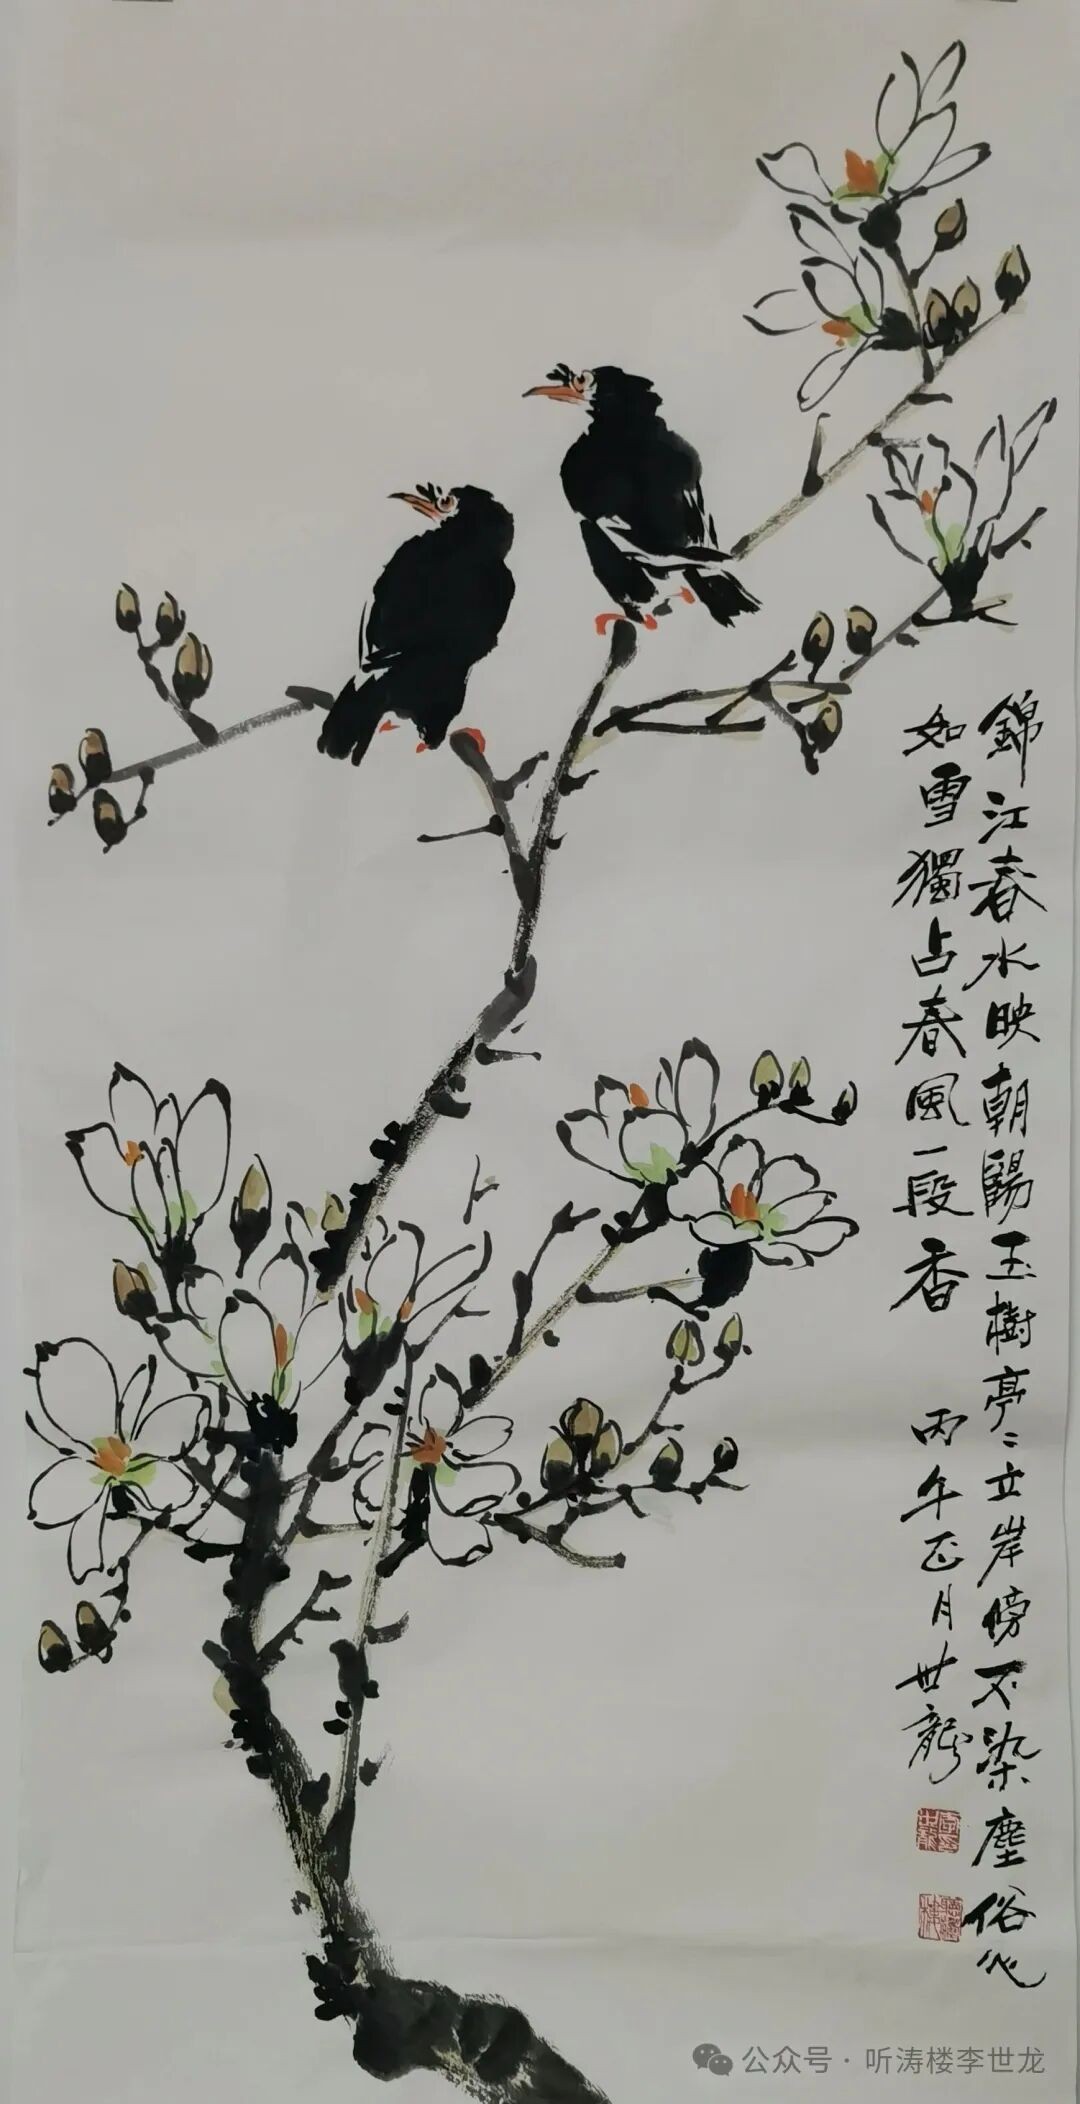 錦江春水映朝陽玉樹亭〻立岸傍不染塵俗心
如雪獨占春風一段香 丙午正月世龍
李世龍印
听濤樓
公众号·听涛楼李世龙